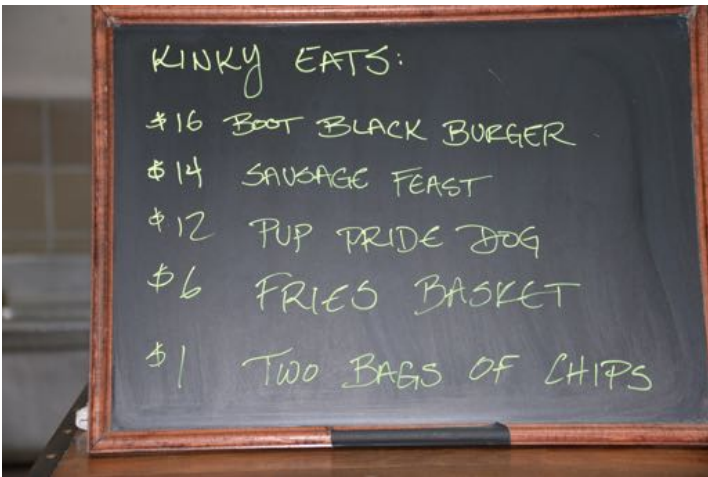 KINKY EATS:
$16 BOOT BLACK BURGER
$14 SAUSAGE FEAST
$12 PUP PRIDE DOG
$6 FRIES BASKET
$1 TWO BAGS OF CHIPS